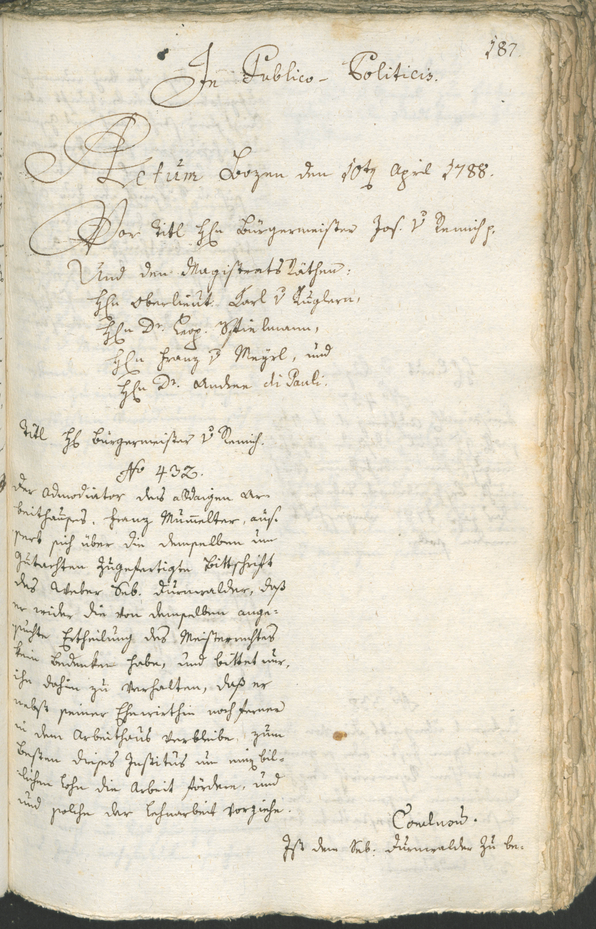 187.
In Publico-Politicis.
Actum Bozen den 10ten April 1788.
Vor Titl Hn Bürgermeister Jos. v Remich p.
Und den Magistrats Räthen:
Hn Oberlieut. Carl v Zuglern,
Hn Dr. Leop. Stielmann,
Hn Franz v Meyrl, und
Hn Dr. Andree di Pauli.
Titl H Bürgermeister v Remich.
No 432.
Der Admodiator des alldaigen Ar-
beithauses, Franz Mumelter, aus-
sert sich über die demselben um
Gutachten zugefertigte Bittschrift
des Weber Seb. Durnwalder, daß
er wider die von demselben ange-
suchte Ertheilung des Meisterrechtes
kein Bedenken habe, und bittet nur,
ihn dahin zu verhalten, daß er
nebst seiner Ehewirthin noch ferner
in dem Arbeithaus verbleibe, zum
Besten dieses Institus um einen bil-
lichen Lohn die Arbeit fördere, und
und solche der Lohnarbeit vorziehe.
Conclusum.
Ist dem Seb. Durnwalder zu be-